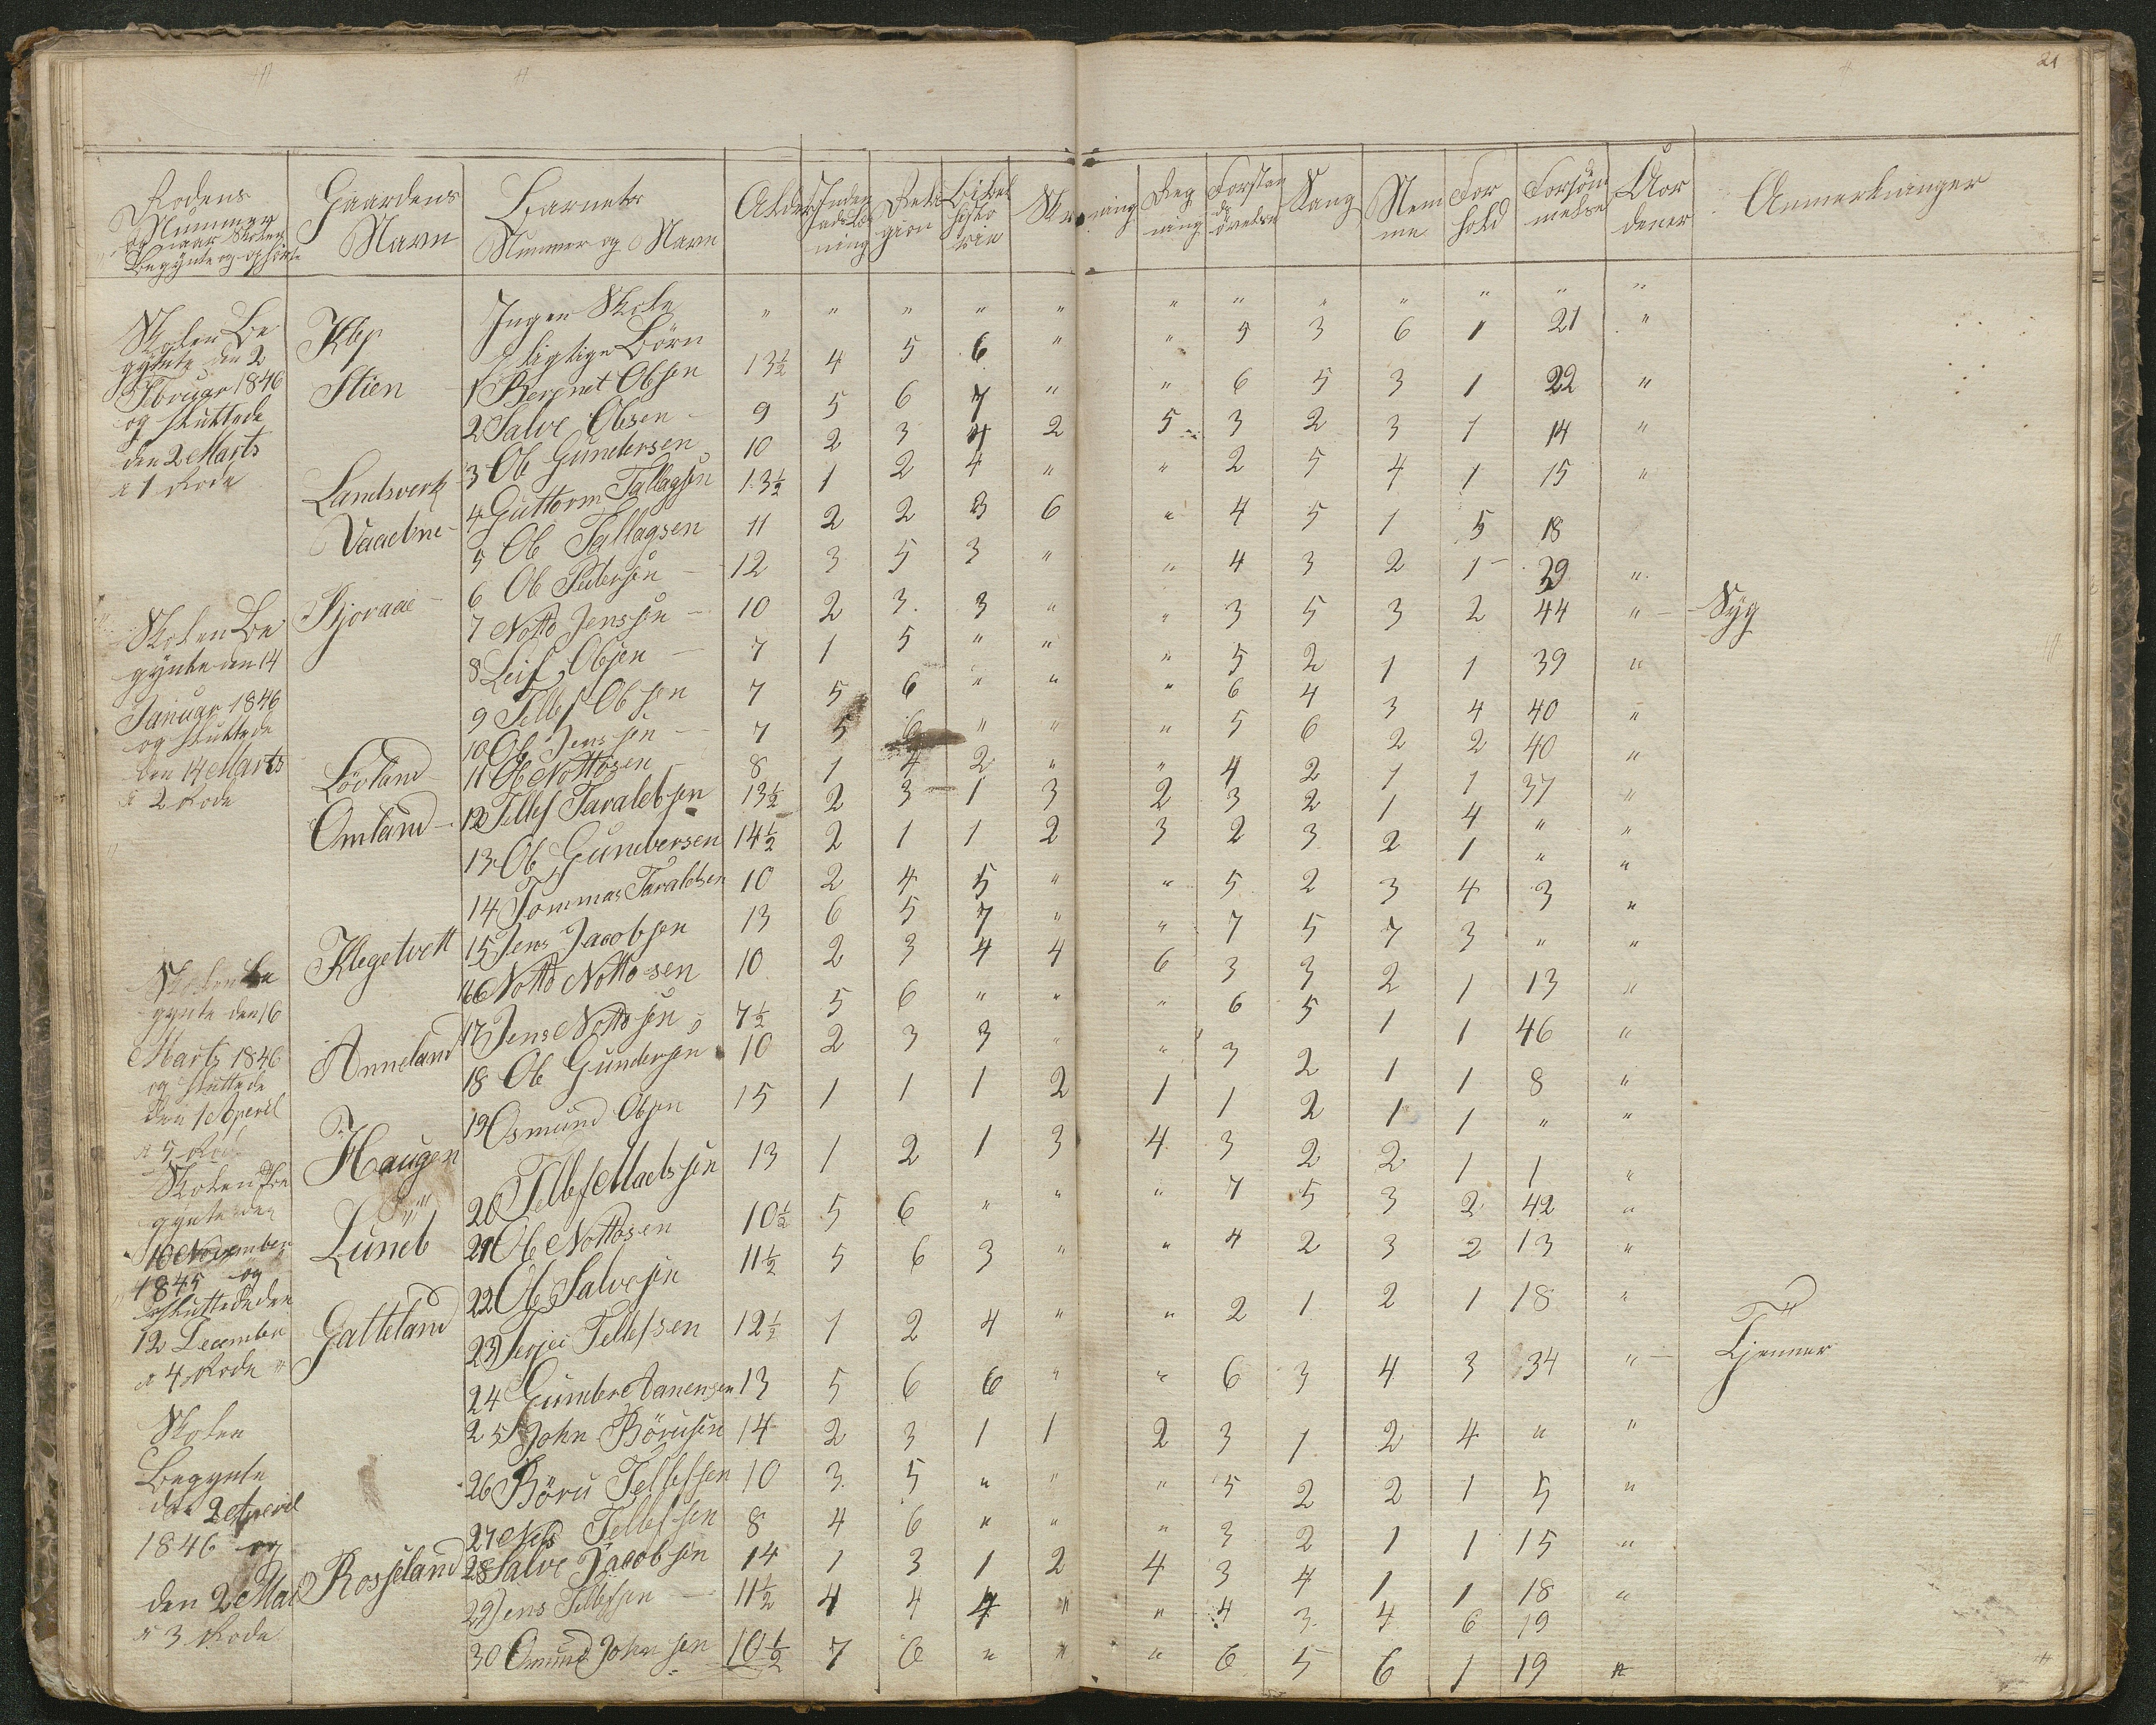 21
Rodens Nummer og naar Skolen Begynte og ophørte | Gaardens Navn | Barnets Nummer og Navn | Alder | Inden ad Læs ning | Reli gion | Bibel histo rie | Skrivning | Reg ning | Forstan ds øvelse | Sang | Nem me | For hold | Forsøm melse | Uor dener | Anmerkninger
Skolen Be
gynte den 2
Februar 1846
og sluttede
den 2 Marts
i 1 Rode
Klep | Ingen Skole | " | " | " | " | " | " | " | " | " | " | " | "
pligtige Børn
Stien | 1 Bergnet Olsen | 13½ | 4 | 5 | 6 | " | " | 5 | 3 | 6 | 1 | 21 | "
2 Salve Olsen | 9 | 5 | 6 | 7 | " | " | 6 | 5 | 3 | 1 | 22 | "
Landsverk | 3 Ole Gundersen | 10 | 2 | 3 | 4 | 2 | 5 | 3 | 2 | 3 | 1 | 14 | "
Vaaelne | 4 Guttorm Tallagsen | 13½ | 1 | 2 | 4 | " | " | 2 | 5 | 4 | 1 | 15 | "
5 Ole Tallagsen | 11 | 2 | 2 | 3 | 6 | " | 4 | 5 | 1 | 5 | 18
Skolen Be
gynte den 14
Januar 1846
og sluttede
den 14 Marts
i 2 Rode
Bjovaae | 6 Ole Pedersen | 12 | 3 | 5 | 3 | " | " | 4 | 3 | 2 | 1 | 39 | "
7 Notto Jenssen | 10 | 2 | 3 | 3 | " | " | 3 | 5 | 3 | 2 | 44 | " | Syg
8 Leif Olsen | 7 | 1 | 5 | " | " | " | 5 | 2 | 1 | 1 | 39 | "
9 Tellef Olsen | 7 | 5 | 6 | " | " | " | 6 | 4 | 3 | 4 | 40 | "
10 Ole Jenssen | 7 | 5 | 6 | " | " | " | 5 | 6 | 2 | 2 | 40 | "
Löoland | 11 Ole Nottosen | 8 | 1 | 4 | 2 | " | " | 4 | 2 | 1 | 1 | 37 | "
Omland | 12 Tellef Taraldsen | 13½ | 2 | 3 | 1 | 3 | 2 | 3 | 2 | 1 | 4 | " | "
13 Ole Gundersen | 14½ | 2 | 1 | 1 | 2 | 3 | 2 | 3 | 2 | 1 | " | "
14 Tommas Taraldsen | 10 | 2 | 4 | 5 | " | " | 5 | 2 | 3 | 4 | 3 | "
Skolen be
gynte den 16
Marts 1846
og sluttede
den 1 Aperil
i 5 Rode
Klegetvett | 15 Jens Jacobsen | 13 | 6 | 5 | 7 | " | " | 7 | 5 | 7 | 3 | " | "
16 Notto Nottosen | 10 | 2 | 3 | 4 | 4 | 6 | 3 | 3 | 2 | 1 | 13 | "
17 Jens Nottosen | 7½ | 5 | 6 | " | " | " | 6 | 5 | 1 | 1 | 46 | "
Anneland | 18 Ole Gundersen | 10 | 2 | 3 | 3 | " | " | 3 | 2 | 1 | 1 | 8 | "
19 Osmund Olsen | 15 | 1 | 1 | 1 | 2 | 1 | 1 | 2 | 1 | 1 | " | "
Skolen Be
gynte den
10 November
1845 og
sluttede den
12 December
i 4 Rode
Haugen | 20 Tellef Madssen | 13 | 1 | 2 | 1 | 3 | 4 | 3 | 2 | 2 | 1 | 1 | "
Lund | 21 Ole Nottosen | 10½ | 5 | 6 | " | " | " | 7 | 5 | 3 | 2 | 42 | "
22 Ole Salvesen | 11½ | 5 | 6 | 3 | " | " | 4 | 2 | 3 | 2 | 13 | "
Gatteland | 23 Terjei Tellefsen | 12½ | 1 | 2 | 4 | " | " | 2 | 1 | 2 | 1 | 18 | "
24 Gunder Aanensen | 13 | 5 | 6 | 6 | " | " | 6 | 3 | 4 | 3 | 34 | " | Tjenner
Skolen
Begynte
den 2 Aperil
1846 og
den 2 Mai
i 3 Rode
25 John Börusen | 14 | 2 | 3 | 1 | 1 | 2 | 3 | 1 | 2 | 4 | " | "
26 Böru Tellefsen | 10 | 3 | 5 | " | " | " | 5 | 2 | 2 | 1 | 5 | "
27 Nels Tellefsen | 8 | 4 | 6 | " | " | " | 3 | 2 | 1 | 1 | 15 | "
Rosseland | 28 Salve Jacobsen | 14 | 1 | 3 | 1 | 2 | 4 | 3 | 4 | 1 | 1 | 18 | "
29 Jens Tellefsen | 11½ | 4 | 4 | 4 | " | " | 4 | 3 | 4 | 6 | 19
30 Omund Johnsen | 10½ | 7 | 6 | " | " | " | 6 | 5 | 6 | 1 | 19 | "